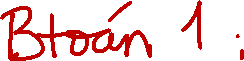 Btoán 1 :